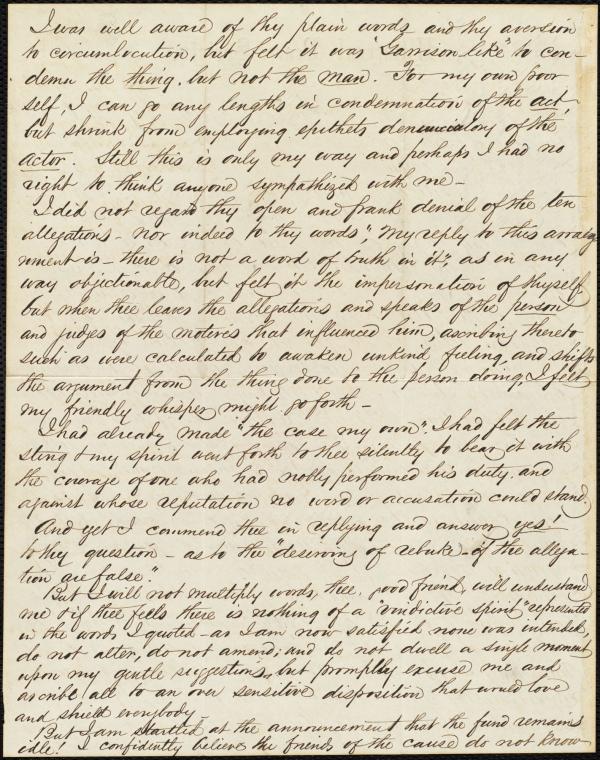 I was well aware of thy plain words and thy aversion
to circumlocution, but felt it was "Garrison-like" to con-
demn the thing, but not the man. For my own poor
self, I can go any lengths in condemnation of the act,
but shrink from employing epithets denunciatory of the
actor. Still this is only my way and perhaps I had no
right to think anyone sympathized with me -
I did not regard thy open and frank denial of the ten
allegations - nor indeed to thy words, "My reply to this arraign
ment is - there is not a word of truth in it", as in any
way objectionable, but felt it the impersonation of thyself,
but when thee leaves the allegations and speaks of the person
and judges of the motives that influenced him, ascribing thereto
such as were calculated to awaken unkind feeling, and shifts
the argument from the thing done to the person doing, I felt
my friendly whisper might go forth -
I had already made "the case my own". I had felt the
sting & my spirit went forth to thee silently to bear it with
the courage of one who had nobly performed his duty, and
against whose reputation no word or accusation could stand.
And yet I commend thee in replying and answer yes!
to thy question - as to the "deserving of rebuke - if the allega-
tion are false".
But I will not multiply words, thee, good friend, will understand
me & if thee feels there is nothing of a "vindictive spirit" represented
in the words I quoted - as I am now satisfied none was intended,
do not alter, do not amend; and do not dwell a single moment
upon my gentle suggestions, but promptly excuse me and
ascribe all to an over sensitive disposition that would love
and shield everybody.
But I am startled at the announcement that the fund remains
idle! I confidently believe the friends of the cause do not know